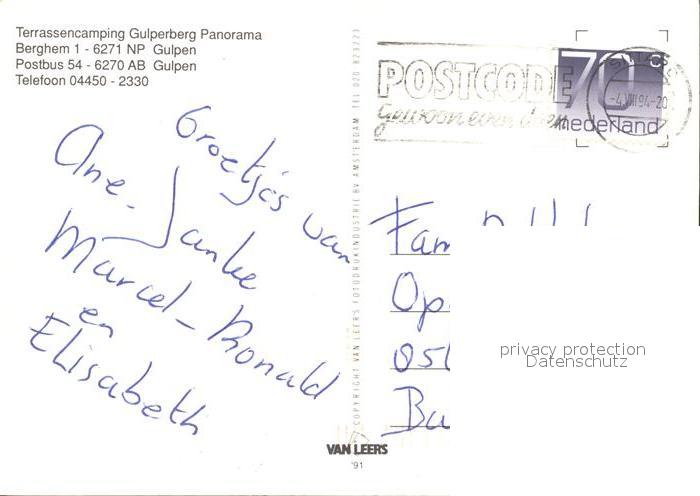 Terrassencamping Gulperberg Panorama
Berghem 1 - 6271 NP Gulpen
Postbus 54 - 6270 AB Gulpen
Telefoon 04450 - 2330
Groetjes van
Ane. Janke
Marcel - Ronald
en
Elisabeth
COPYRIGHT VAN LEERS FOTODRUKINDUSTRIE BV AMSTERDAM TEL 020 823223
VAN LEERS
'91
POSTCODE
gewoon even doen
70 cs
nederland
-4.VIII.94-20
Fam
Op
051
Ba
privacy protection
Datenschutz